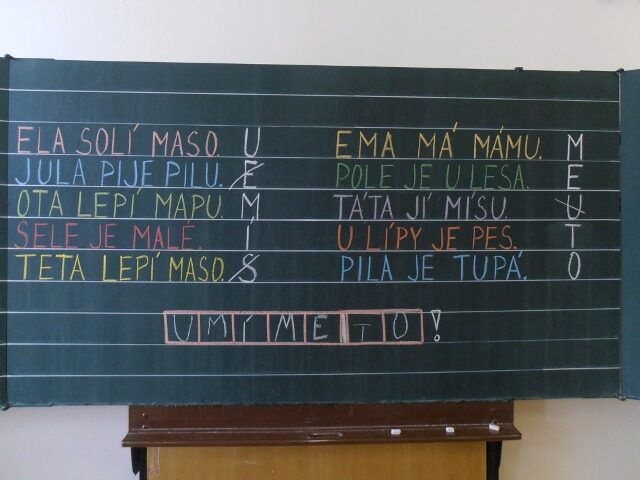 ELA SOLÍ MASO. U
JULA PIJE PILU. E
OTA LEPÍ MAPU. M
SELE JE MALÉ. Í
TETA LEPÍ MASO. S
EMA MÁ MÁMU. M
POLE JE U LESA. E
TÁTA JÍ MÍSU. U
U LÍPY JE PES. T
PILA JE TUPÁ. O
UMÍME TO!